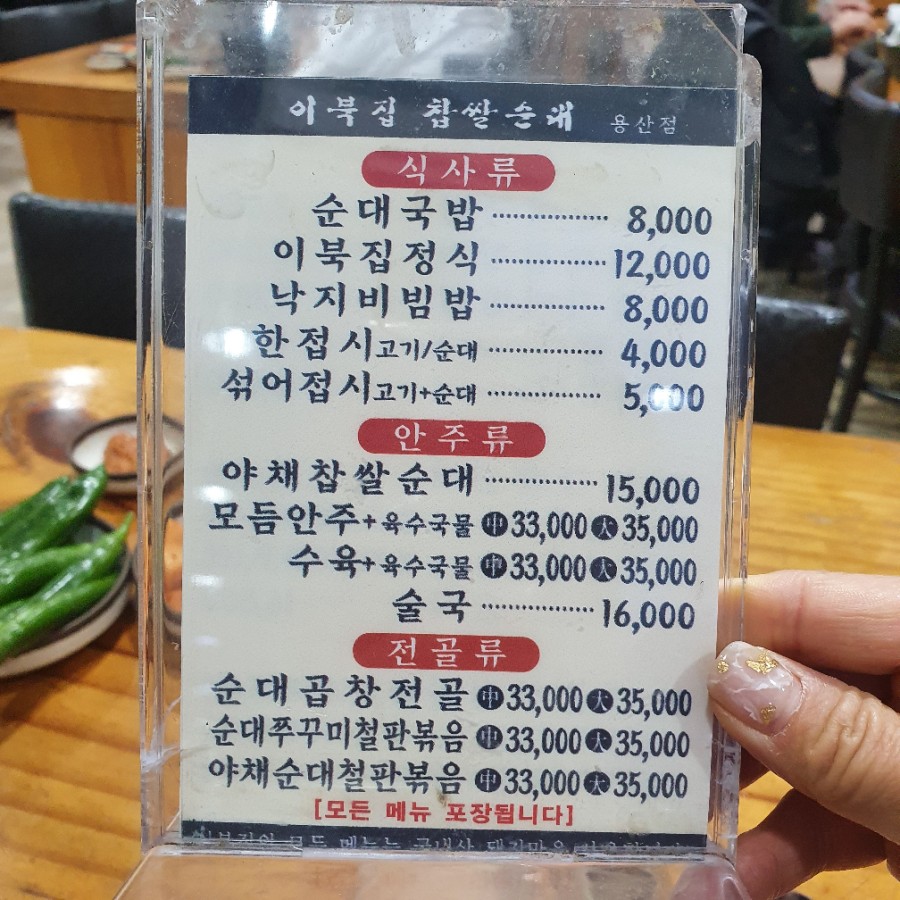 이북집 찹쌀순대 용산점
식사류
순대국밥 8,000
이북집정식 12,000
낙지비빔밥 8,000
한접시고기/순대 4,000
섞어접시고기+순대 5,000
안주류
야채찹쌀순대 15,000
모듬안주+육수국물 中33,000 大35,000
수육+육수국물 中33,000 大35,000
술국 16,000
전골류
순대곱창전골 中33,000 大35,000
순대쭈꾸미철판볶음 中33,000 大35,000
야채순대철판볶음 中33,000 大35,000
[모든 메뉴 포장됩니다]
모든 메뉴는 국내산